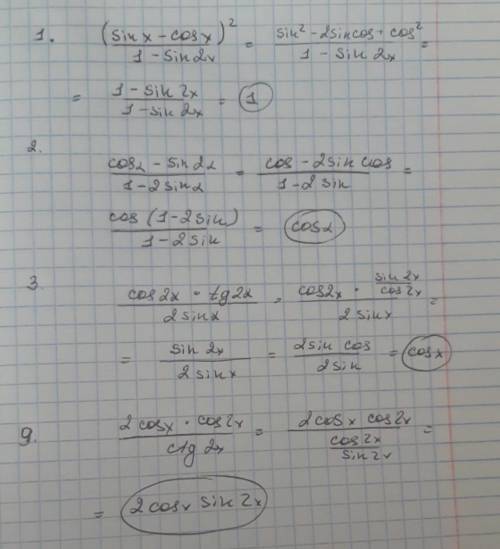 1. (sin x - cos x)² / (1 - sin 2x) = (sin² - 2sin cos + cos²) / (1 - sin 2x) =
= (1 - sin 2x) / (1 - sin 2x) = 1
2. (cos α - sin 2α) / (1 - 2 sin α) = (cos - 2sin cos) / (1 - 2 sin) =
cos (1 - 2 sin) / (1 - 2 sin) = cos α
3. (cos 2x · tg 2x) / (2 sin x) = (cos 2x · (sin 2x / cos 2x)) / (2 sin x) =
= sin 2x / (2 sin x) = (2 sin cos) / (2 sin) = cos x
9. (2 cos x · cos 2x) / (ctg 2x) = (2 cos x cos 2x) / (cos 2x / sin 2x) =
= 2 cos x sin 2x